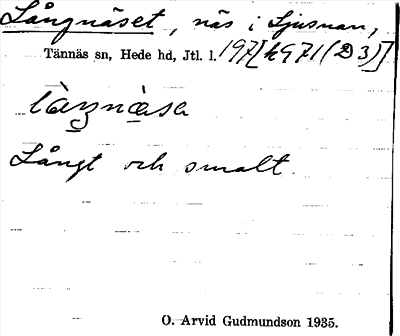 Långnäset, näs i Ljusnan,
Tännäs sn, Hede hd, Jtl. l. 197[k971(D3)]
Långt och smalt.
O. Arvid Gudmundson 1935.